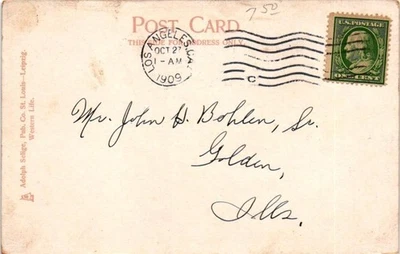 7.50
POST CARD
THE SIDE FOR ADDRESS ONLY
LOS ANGELES, CAL.
OCT 27
1-AM
1909
C
U.S. POSTAGE
ONE CENT
Mr. John H. Bohlen, Sr.
Golden,
Ills.
Adolph Selige, Pub. Co. St. Louis—Leipzig.
Western Life.